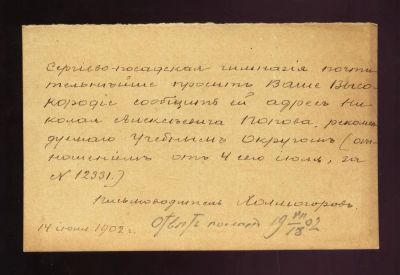 Сергіево-посадская гимназія почти
тельнѣйше проситъ Ваше Высо
кородіе сообщить ей адресъ Ни
колая Алексѣевича Попова, рекомен
дуемаго Учебнымъ Округомъ (от
ношеніемъ отъ 4 сего іюля, за
№ 12331.)
Письмоводитель Холмогоровъ.
14 іюля 1902 г. Отвѣтъ посланъ 19 VII 02